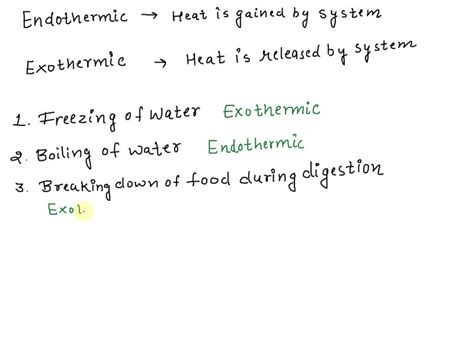 Endothermic → Heat is gained by system
Exothermic → Heat is released by system
1. Freezing of water Exothermic
2. Boiling of water Endothermic
3. Breaking down of food during digestion
Exot